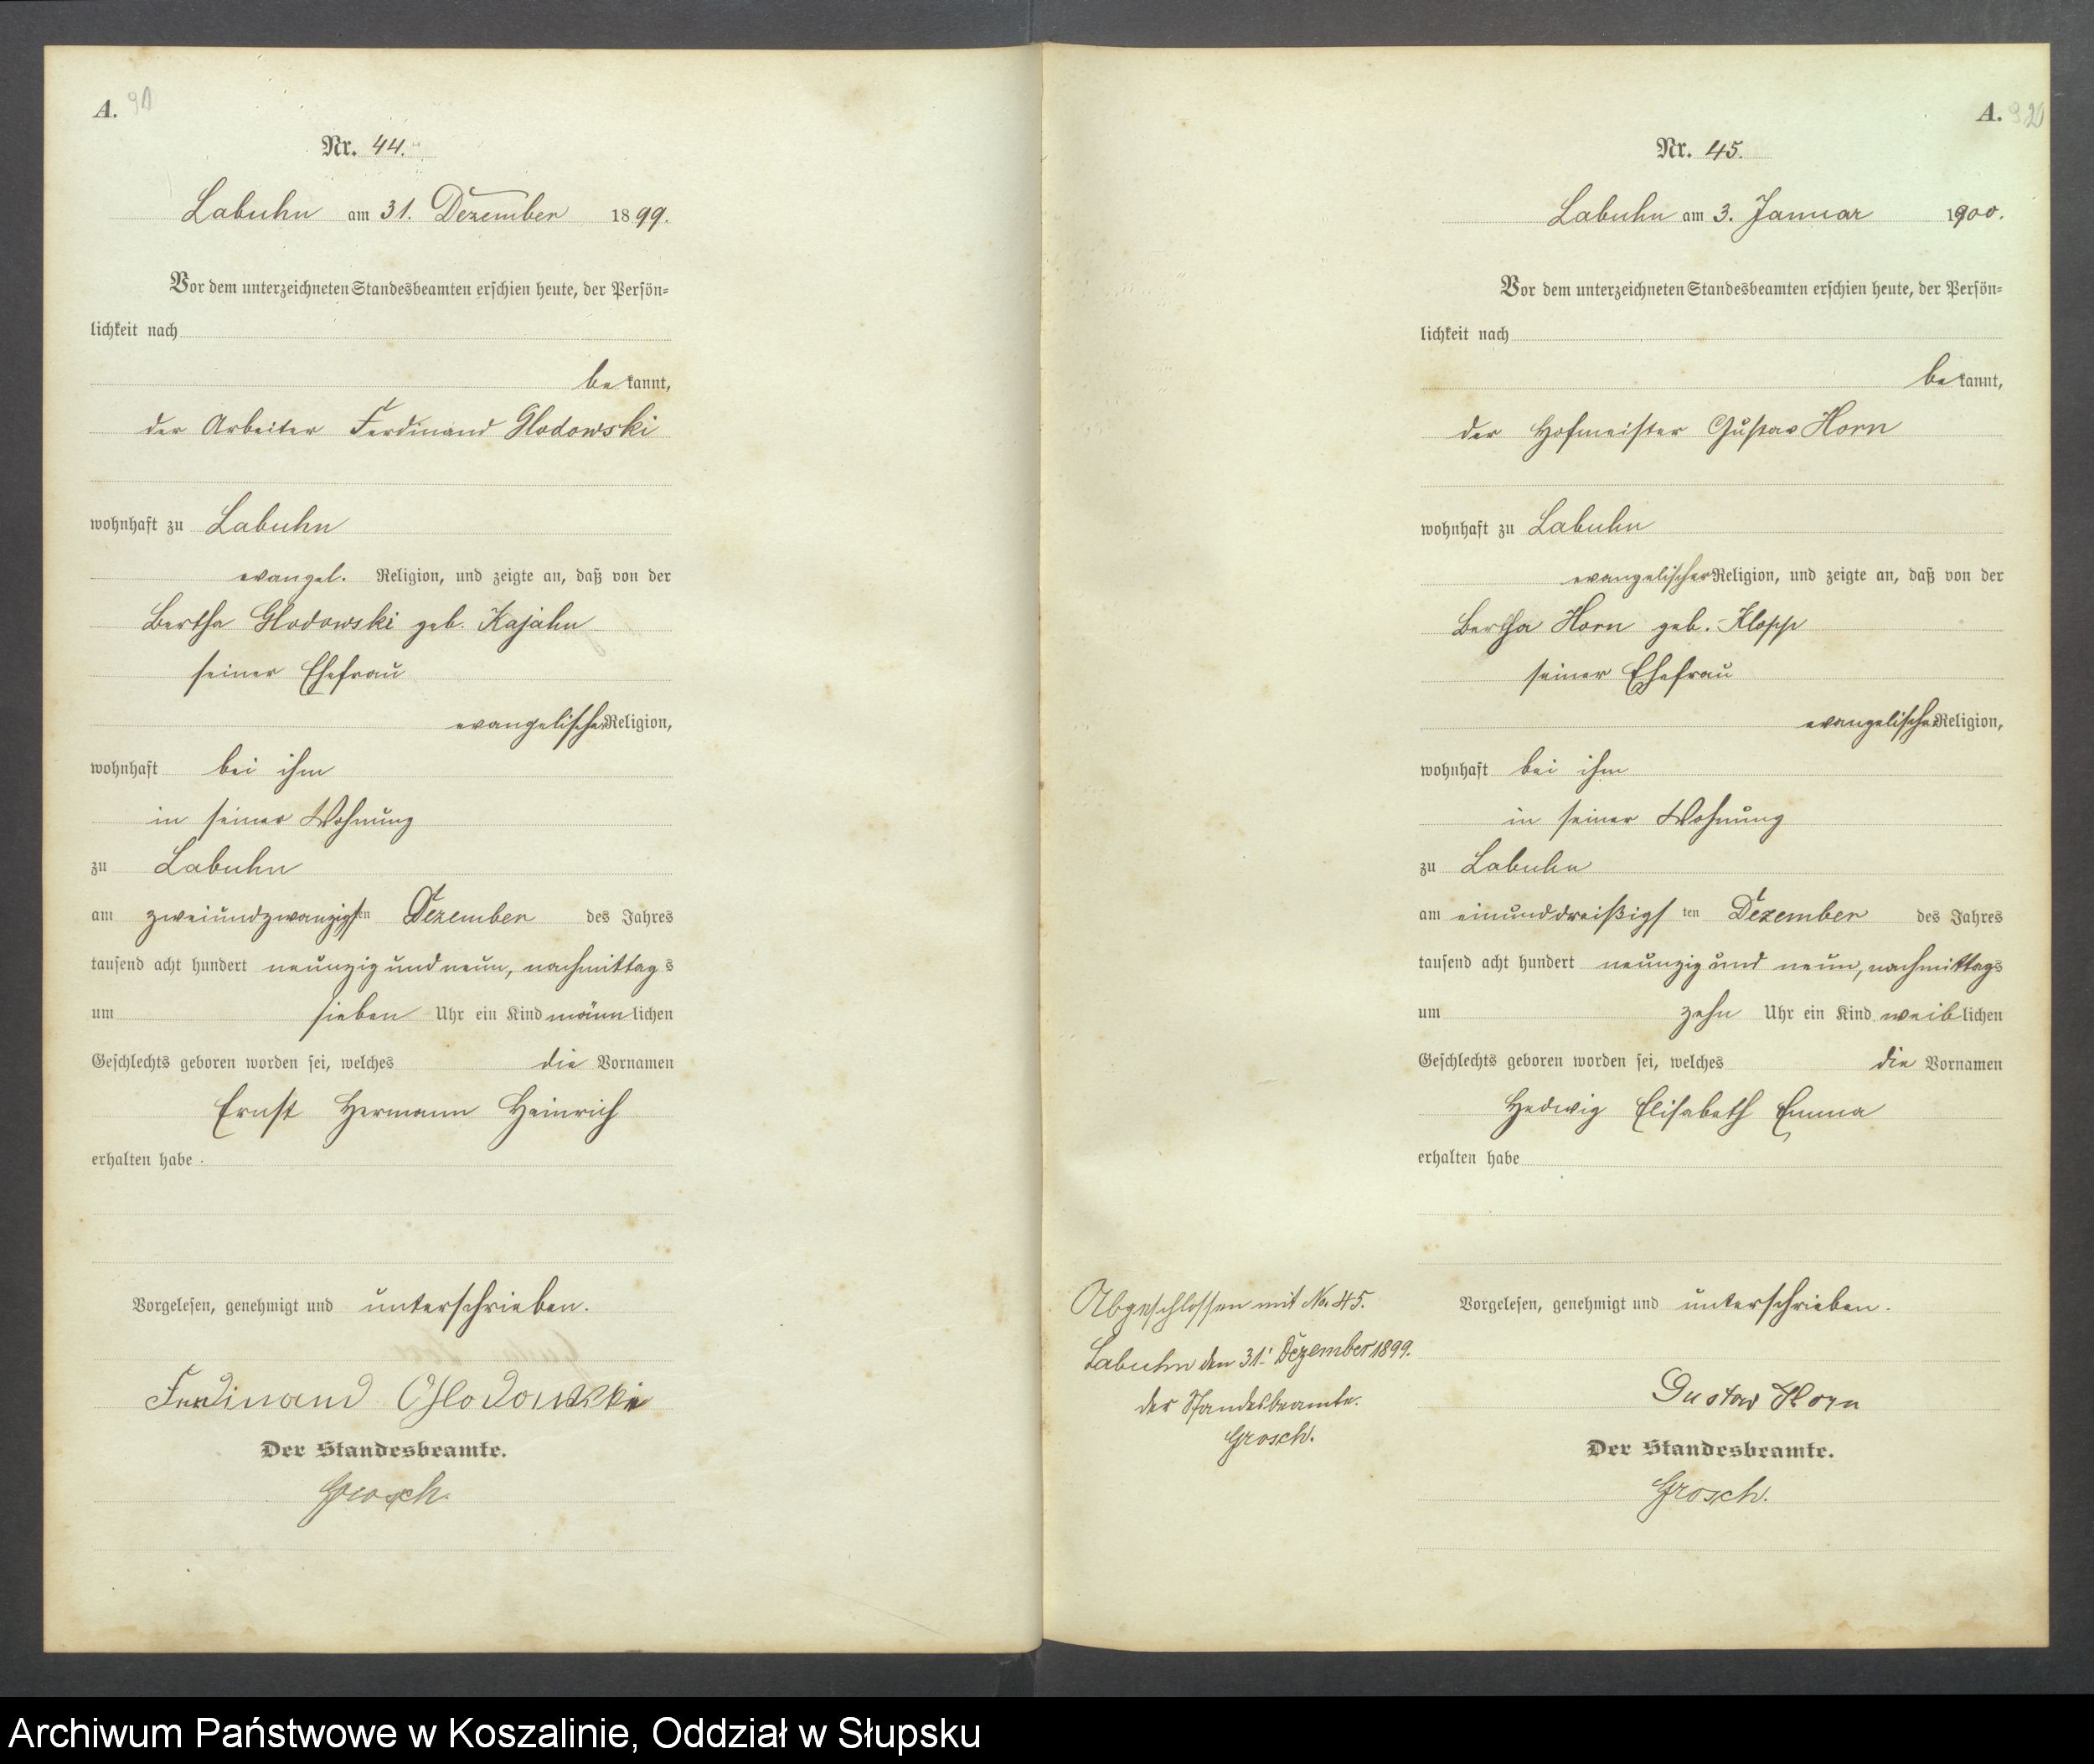 A.
Nr. 44.
Labuhn am 31. Dezember 1899.
Vor dem unterzeichneten Standesbeamten erschien heute, der Persön=
lichkeit nach
be kannt,
der Arbeiter Ferdinand Glodowski
wohnhaft zu Labuhn
evangel. Religion, und zeigte an, daß von der
Bertha Glodowski geb. Kajahn
seiner Ehefrau
evangelischer Religion,
wohnhaft bei ihm
in seiner Wohnung
zu Labuhn
am zweiundzwanzigsten Dezember des Jahres
tausend acht hundert neunzig und neun, nachmittags
um sieben Uhr ein Kind männlichen
Geschlechts geboren worden sei, welches die Vornamen
Ernst Hermann Heinrich
erhalten habe.
Vorgelesen, genehmigt und unterschrieben.
Ferdinand Glodowski
Der Standesbeamte.
Grosch.
A.
Nr. 45.
Labuhn am 3. Januar 1900.
Vor dem unterzeichneten Standesbeamten erschien heute, der Persön=
lichkeit nach
be kannt,
der Hofmeister Gustav Horn
wohnhaft zu Labuhn
evangelischer Religion, und zeigte an, daß von der
Bertha Horn geb. Klopp
seiner Ehefrau
evangelischer Religion,
wohnhaft bei ihm
in seiner Wohnung
zu Labuhn
am einunddreißigsten Dezember des Jahres
tausend acht hundert neunzig und neun, nachmittags
um zehn Uhr ein Kind weiblichen
Geschlechts geboren worden sei, welches die Vornamen
Hedwig Elisabeth Emma
erhalten habe
Vorgelesen, genehmigt und unterschrieben.
Gustav Horn
Der Standesbeamte.
Grosch.
Abgeschlossen mit No. 45.
Labuhn den 31. Dezember 1899.
der Standesbeamte.
Grosch.
Archiwum Państwowe w Koszalinie, Oddział w Słupsku